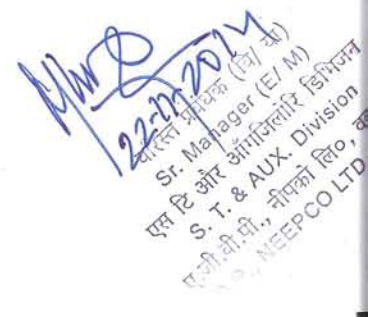 22-11-2014
वरिस्त प्रबंधक (वि/ या)
Sr. Manager (E/ M)
एस टि और ऑगजिलोरि डिभिजन
S. T. & AUX. Division
ए.जी.वी.पी., नीपको लि०,
NEEPCO LTD